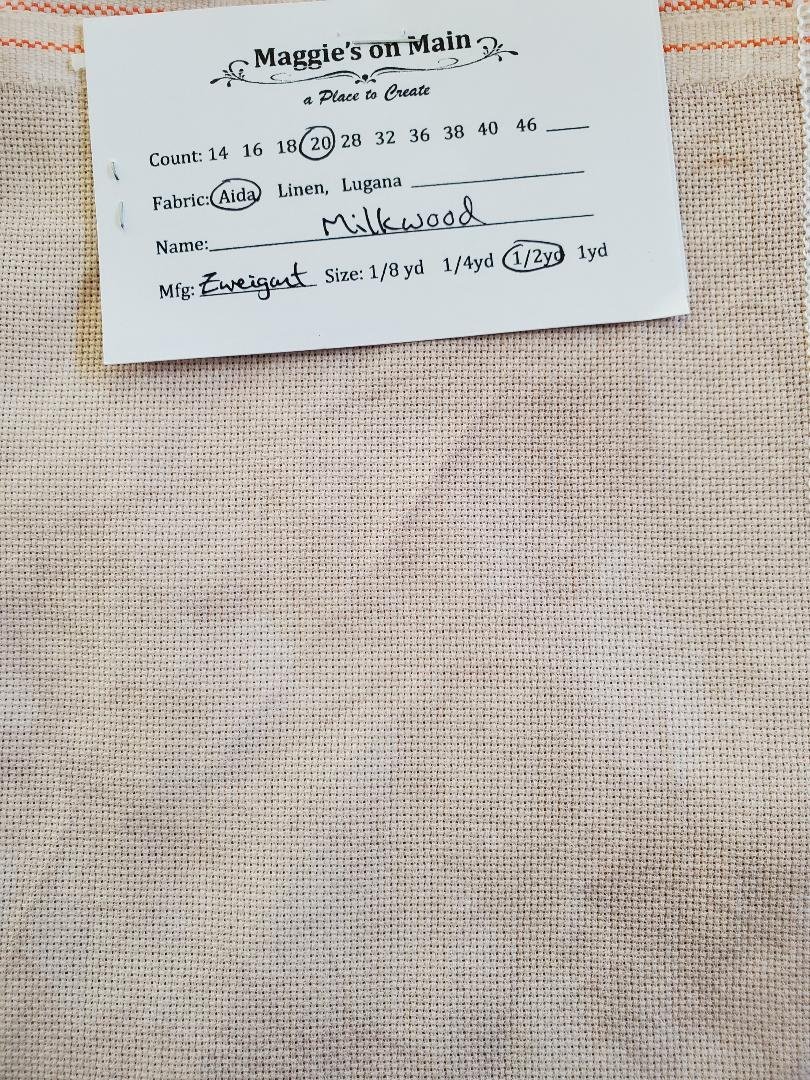 Maggie's on Main
a Place to Create
Count: 14 16 18 20 28 32 36 38 40 46
Fabric: Aida Linen, Lugana
Name: Milkwood
Mfg: Zweigart Size: 1/8 yd 1/4yd 1/2yd 1yd